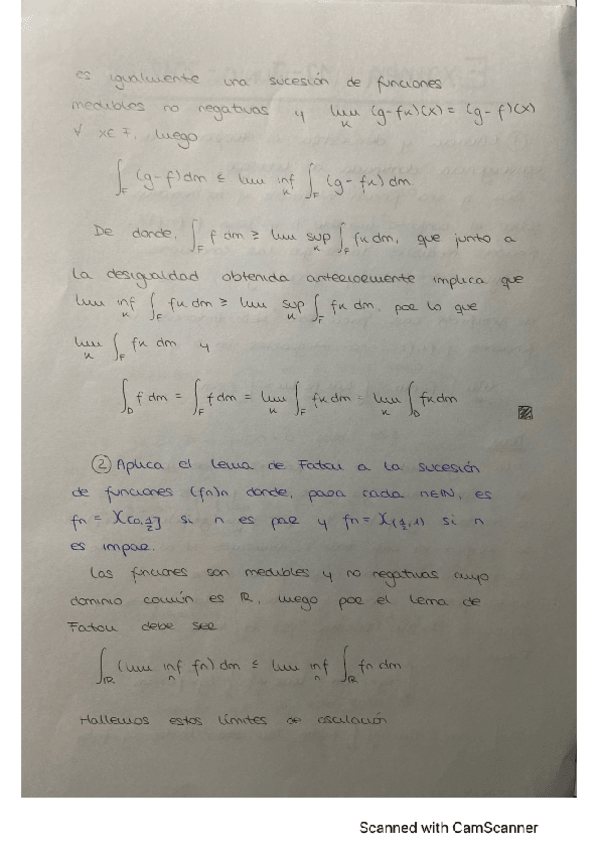 es igualmente una sucesión de funciones
medibles no negativas y lim_k (g-fk)(x) = (g-f)(x)
∀ x∈F, luego
∫_F (g-f)dm ≤ lim inf_k ∫_F (g-fk)dm
De donde, ∫_F f dm ≥ lim sup_k ∫_F fk dm, que junto a
la desigualdad obtenida anteriormente implica que
lim inf_k ∫_F fk dm ≥ lim sup_k ∫_F fk dm, por lo que
lim_k ∫_F fk dm y
∫_D f dm = ∫_F f dm = lim_k ∫_F fk dm = lim_k ∫_D fk dm
② Aplica el Lema de Fatou a la sucesión
de funciones (fn)n donde, para cada n∈ℕ, es
fn = χ(0,1/2] si n es par y fn = χ(1/2,1) si n
es impar.
Las funciones son medibles y no negativas cuyo
dominio común es ℝ, luego por el Lema de
Fatou debe ser
∫_ℝ (lim inf_n fn)dm ≤ lim inf_n ∫_ℝ fn dm
Hallemos estos límites de oscilación
Scanned with CamScanner